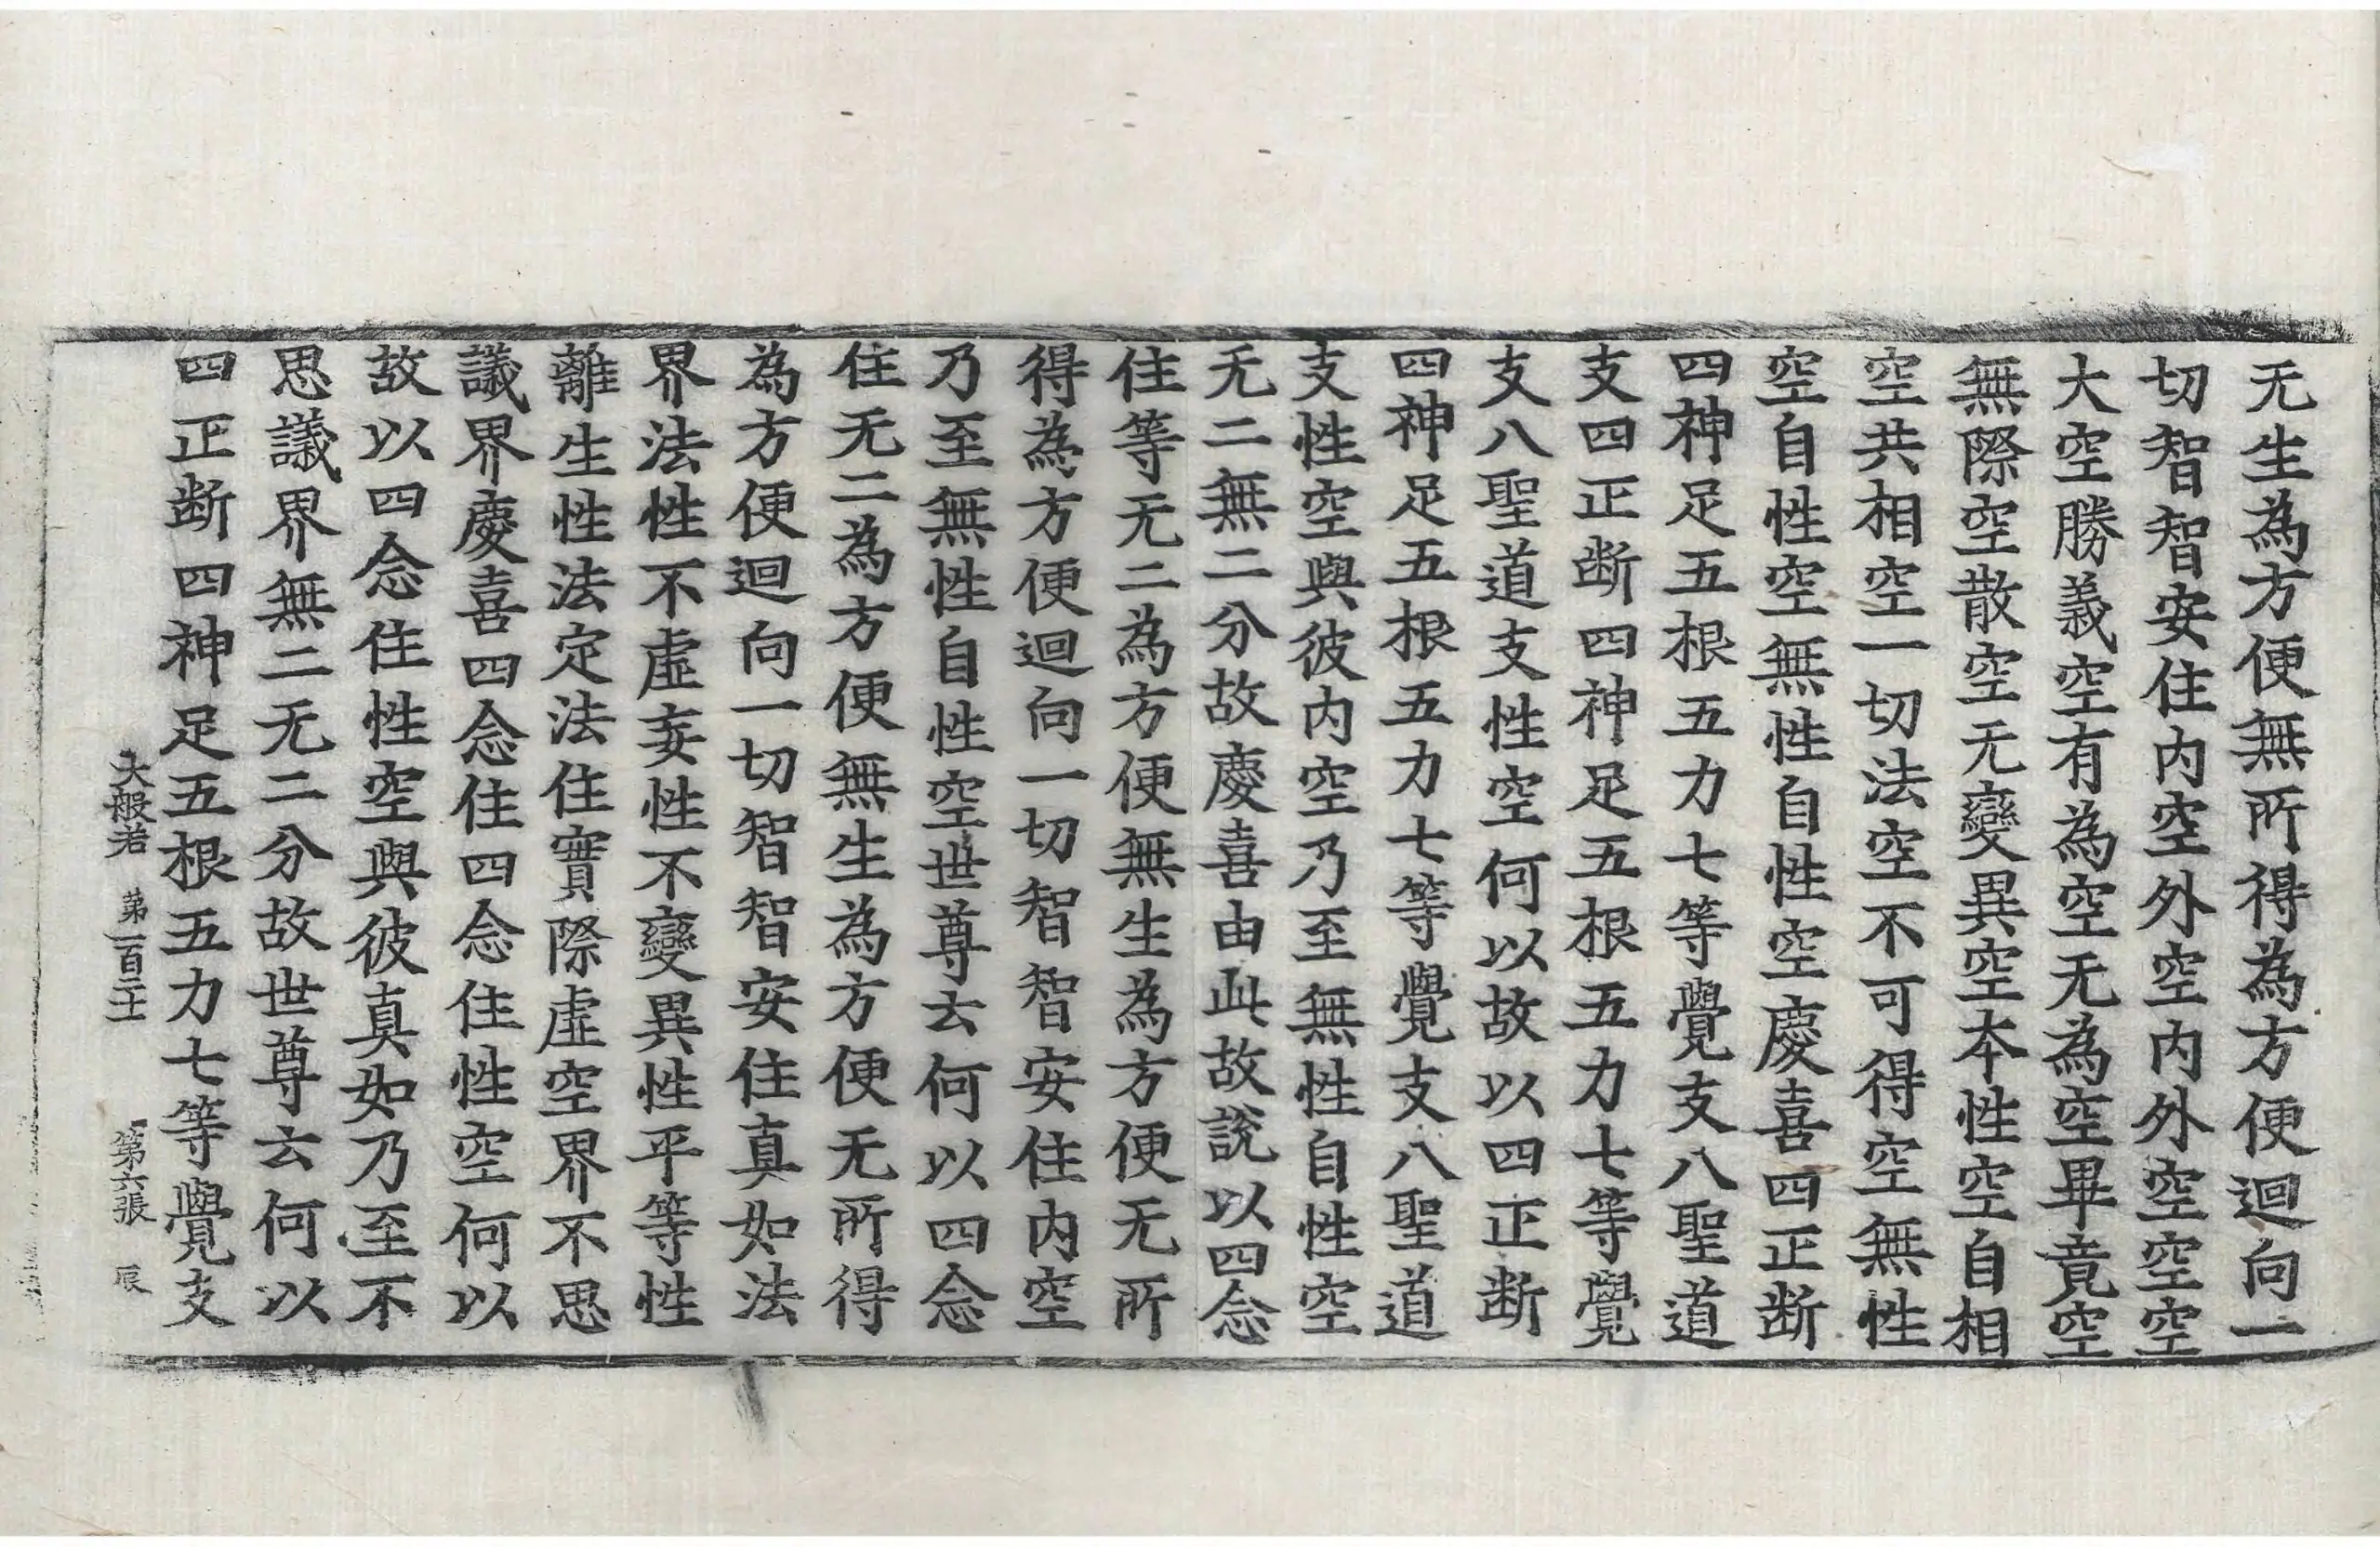 无生為方便無所得為方便迴向一
切智智安住内空外空内外空空空
大空勝義空有為空无為空畢竟空
無際空散空无變異空本性空自相
空共相空一切法空不可得空無性
空自性空無性自性空慶喜四正断
四神足五根五力七等覺支八聖道
支四正断四神足五根五力七等覺
支八聖道支性空何以故以四正断
四神足五根五力七等覺支八聖道
支性空與彼内空乃至無性自性空
无二無二分故慶喜由此故說以四念
住等无二為方便無生為方便无所
得為方便迴向一切智智安住内空
乃至無性自性空世尊云何以四念
住无二為方便無生為方便无所得
為方便迴向一切智智安住真如法
界法性不虛妄性不變異性平等性
離生性法定法住實際虛空界不思
議界慶喜四念住四念住性空何以
故以四念住性空與彼真如乃至不
思議界無二无二分故世尊云何以
四正断四神足五根五力七等覺支
大般若 第一百二十 第六張 辰